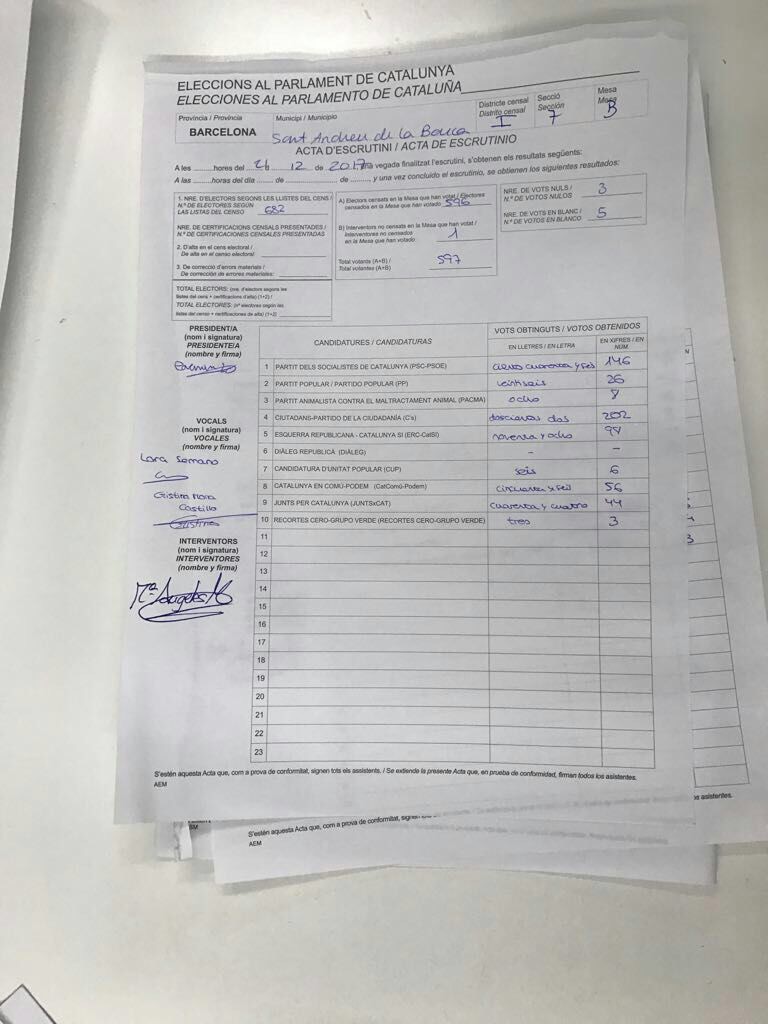 ELECCIONS AL PARLAMENT DE CATALUNYA
ELECCIONES AL PARLAMENTO DE CATALUÑA
Província / Provincia
BARCELONA
Municipi / Municipio
Sant Andreu de la Barca
Districte censal
Distrito censal
I
Secció
Sección
7
Mesa
Mesa
B
ACTA D'ESCRUTINI / ACTA DE ESCRUTINIO
A les .......... hores del 21 12 de 2017 una vegada finalitzat l'escrutini, s'obtenen els resultats següents:
A las .......... horas del día ........ de ........ de ........, y una vez concluido el escrutinio, se obtienen los siguientes resultados:
1. NRE. D'ELECTORS SEGONS LES LLISTES DEL CENS /
N.º DE ELECTORES SEGÚN
LAS LISTAS DEL CENSO 682
NRE. DE CERTIFICACIONS CENSALS PRESENTADES /
N.º DE CERTIFICACIONES CENSALES PRESENTADAS
2. D'alta en el cens electoral /
De alta en el censo electoral:
3. De correcció d'errors materials /
De corrección de errores materiales:
TOTAL ELECTORS: (nre. d'electors segons les
llistes del cens + certificacions d'alta) (1+2) /
TOTAL ELECTORES: (nº electores según las
listas del censo + certificaciones de alta) (1+2)
A) Electors censats en la Mesa que han votat / Electores
censados en la Mesa que han votado 596
B) Interventors no censats en la Mesa que han votat /
Interventores no censados
en la Mesa que han votado 1
Total votants (A+B) /
Total votantes (A+B) 597
NRE. DE VOTS NULS /
N.º DE VOTOS NULOS 3
NRE. DE VOTS EN BLANC /
N.º DE VOTOS EN BLANCO 5
PRESIDENT/A
(nom i signatura)
PRESIDENTE/A
(nombre y firma)
VOCALS
(nom i signatura)
VOCALES
(nombre y firma)
Lara Serrano
Cristina Mora
Castillo
Cristina
INTERVENTORS
(nom i signatura)
INTERVENTORES
(nombre y firma)
Mª Angeles
CANDIDATURES / CANDIDATURAS
VOTS OBTINGUTS / VOTOS OBTENIDOS
EN LLETRES / EN LETRA
EN XIFRES / EN NÚM.
1 PARTIT DELS SOCIALISTES DE CATALUNYA (PSC-PSOE) ciento cuarenta y seis 146
2 PARTIT POPULAR / PARTIDO POPULAR (PP) veintiseis 26
3 PARTIT ANIMALISTA CONTRA EL MALTRACTAMENT ANIMAL (PACMA) ocho 8
4 CIUTADANS-PARTIDO DE LA CIUDADANÍA (C's) doscientos dos 202
5 ESQUERRA REPUBLICANA - CATALUNYA SI (ERC-CatSI) noventa y ocho 98
6 DIÀLEG REPUBLICÀ (DIÀLEG) - -
7 CANDIDATURA D'UNITAT POPULAR (CUP) seis 6
8 CATALUNYA EN COMÚ-PODEM (CatComú-Podem) cincuenta y seis 56
9 JUNTS PER CATALUNYA (JUNTSxCAT) cuarenta y cuatro 44
10 RECORTES CERO-GRUPO VERDE (RECORTES CERO-GRUPO VERDE) tres 3
11
12
13
14
15
16
17
18
19
20
21
22
23
S'estén aquesta Acta que, com a prova de conformitat, signen tots els assistents. / Se extiende la presente Acta que, en prueba de conformidad, firman todos los asistentes.
AEM
3
os asistentes.
S'estén aquesta Acta que, com a prova de conformitat, signen
AEM